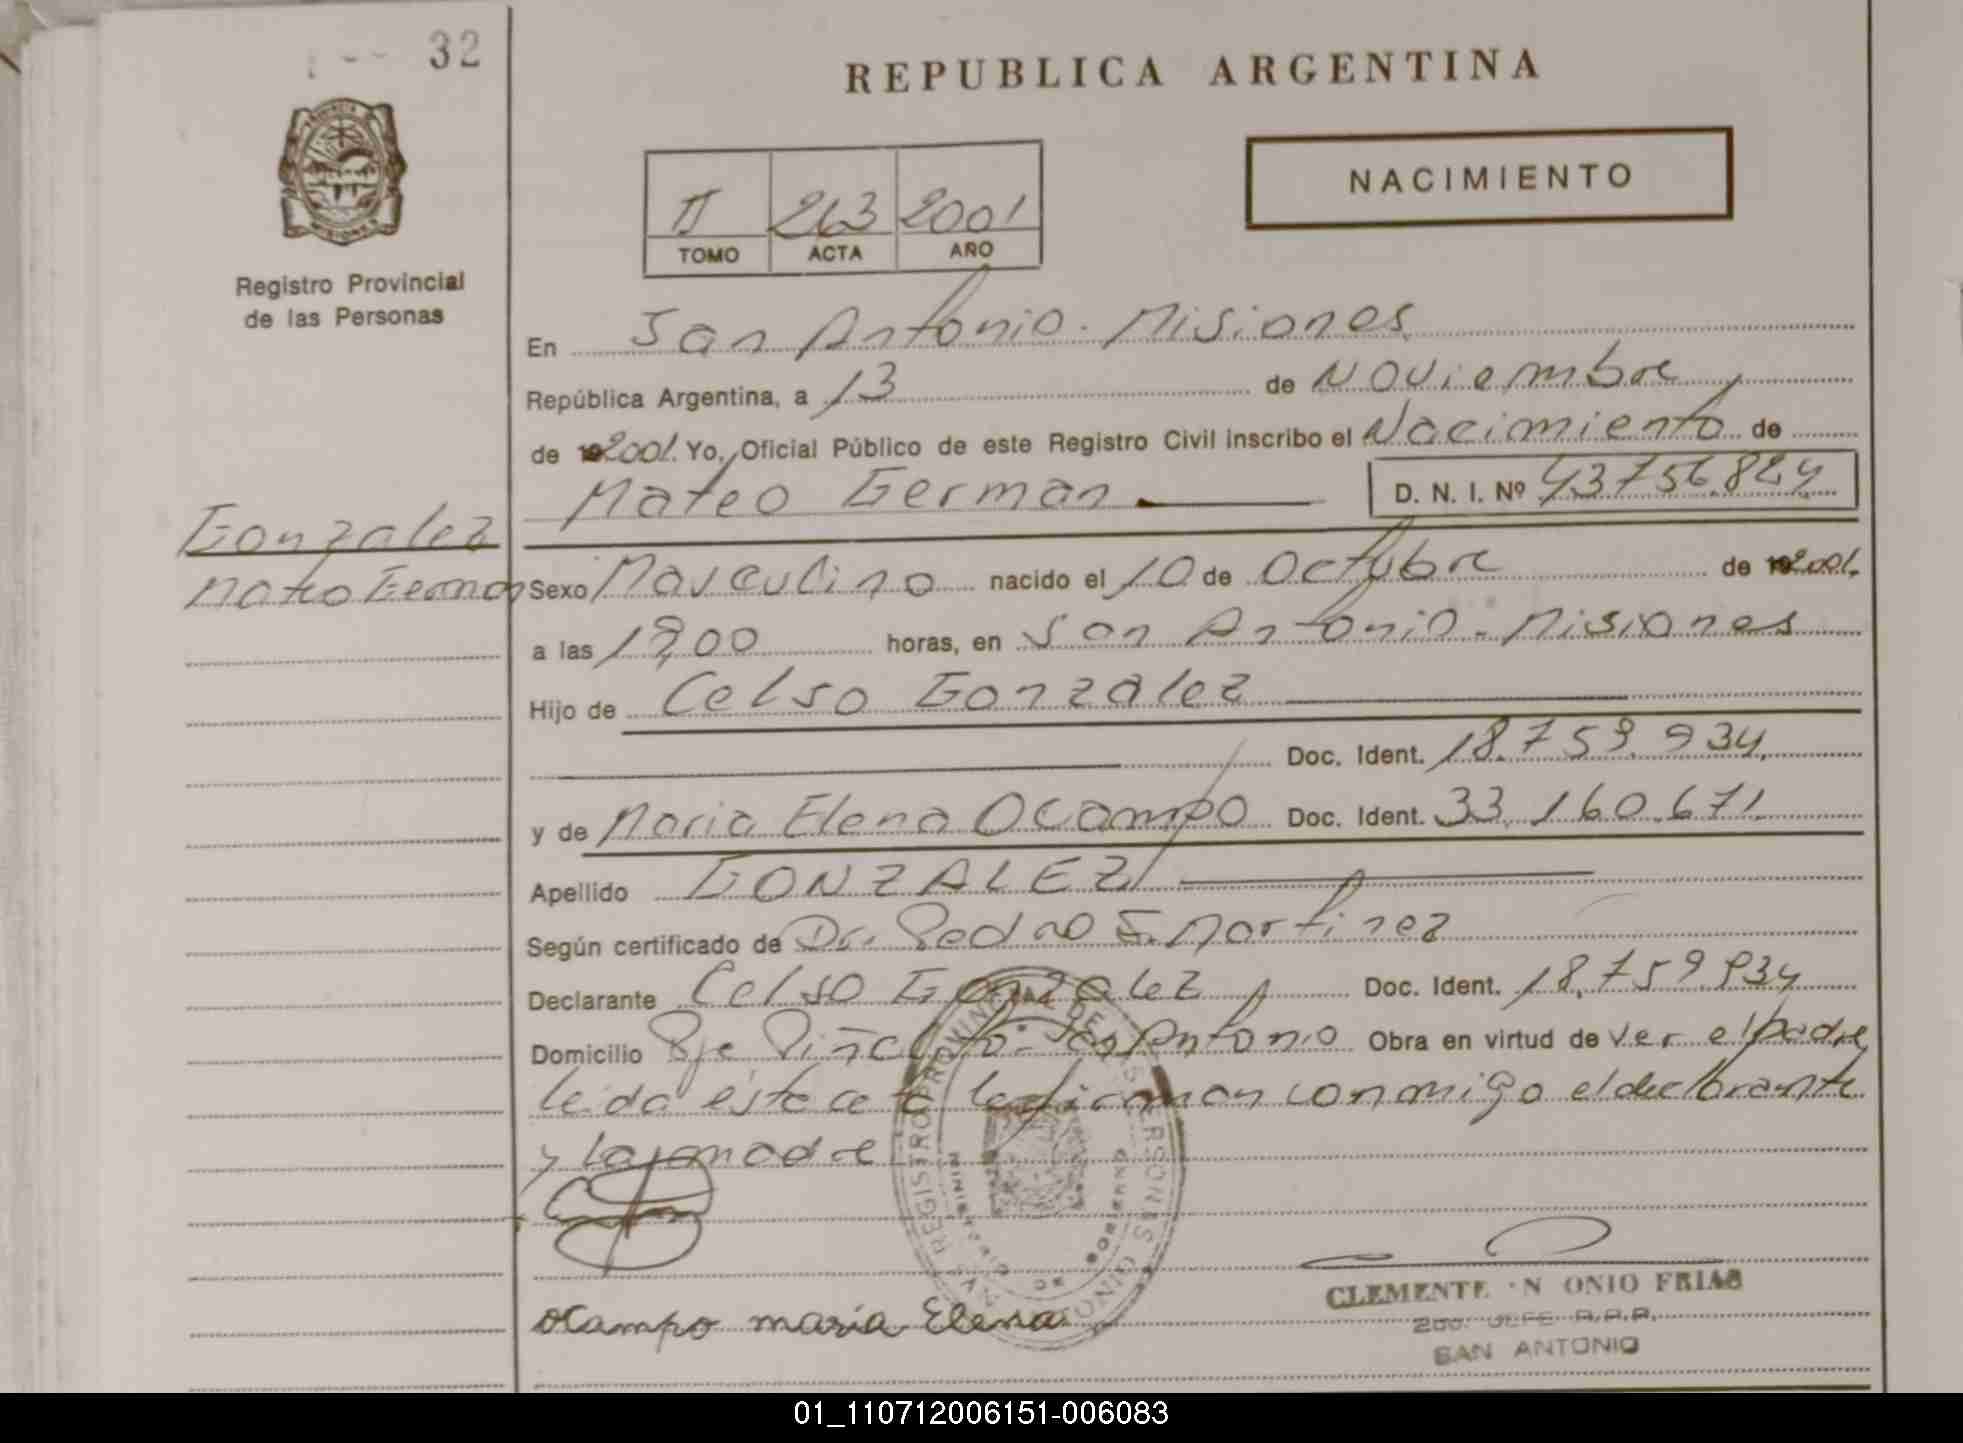 32
REPUBLICA ARGENTINA
NACIMIENTO
II 263 2001
TOMO ACTA AÑO
PROVINCIA DE MISIONES
Registro Provincial
de las Personas
En San Antonio. Misiones
República Argentina, a 13 de Noviembre
de 192001. Yo, Oficial Público de este Registro Civil inscribo el Nacimiento de
Mateo German D. N. I. Nº 43756.824
Gonzalez
Mateo German
Sexo Masculino nacido el 10 de Octubre de 192001.
a las 19,00 horas, en San Antonio. Misiones
Hijo de Celso Gonzalez
Doc. Ident. 18.759.934
y de Maria Elena Ocampo Doc. Ident. 33.160.671
Apellido GONZALEZ
Según certificado de Dr. Pedro E. Martinez
Declarante Celso Gonzalez Doc. Ident. 18.759.934
Domicilio Bje Piñalito - San Antonio Obra en virtud de ver el padre
leida esta acta la firman conmigo el declarante
y la madre
REGISTRO PROVINCIAL DE LAS PERSONAS
MINISTERIO DE GOBIERNO
SAN ANTONIO
Ocampo maria Elena
CLEMENTE N ONIO FRIAS
2do. JEFE R.P.P.
SAN ANTONIO
01_110712006151-006083